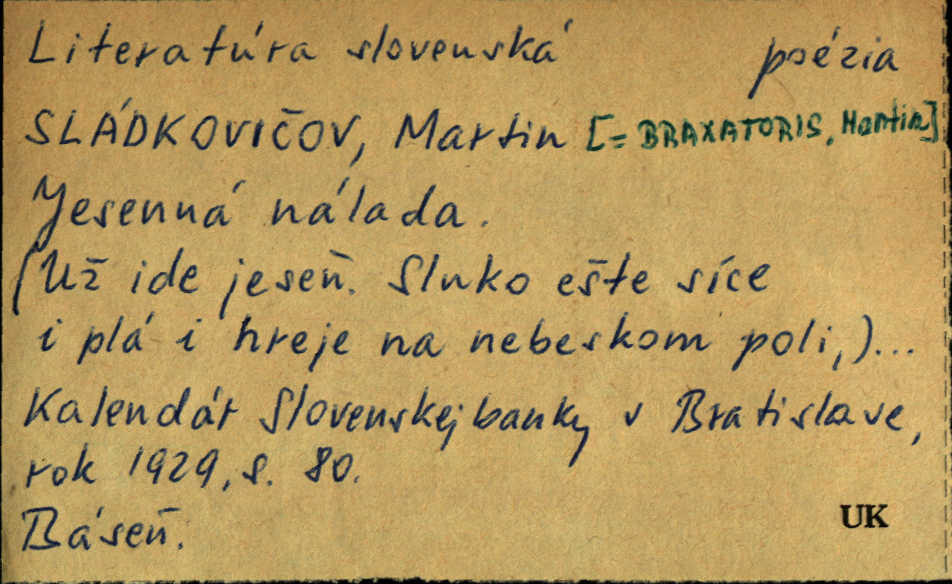 Literatúra slovenská poézia
SLÁDKOVIČOV, Martin [= BRAXATORIS, Martin]
Jesenná nálada.
(Už ide jeseň. Slnko ešte síce
i plá i hreje na nebeskom poli,)...
Kalendár Slovenskej banky v Bratislave,
rok 1929, s. 80.
Báseň.
UK